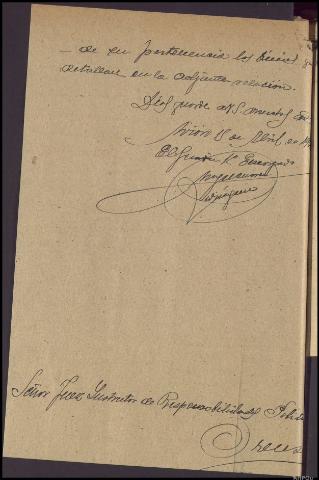 de su pertenencia los bienes que
detallan en la adjunta relación.
Dios guarde a V.S. muchos
Avión 15 de Abril de
El Guardia 1º
Señor Juez Instructor de Responsabilidades
Orense